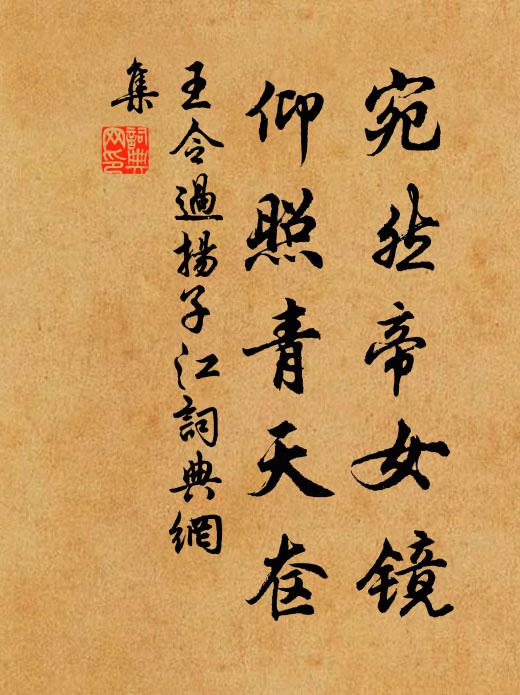 宛然帝女镜
仰照青天奁
王令過揚子江詞典網
集
詞典
网印